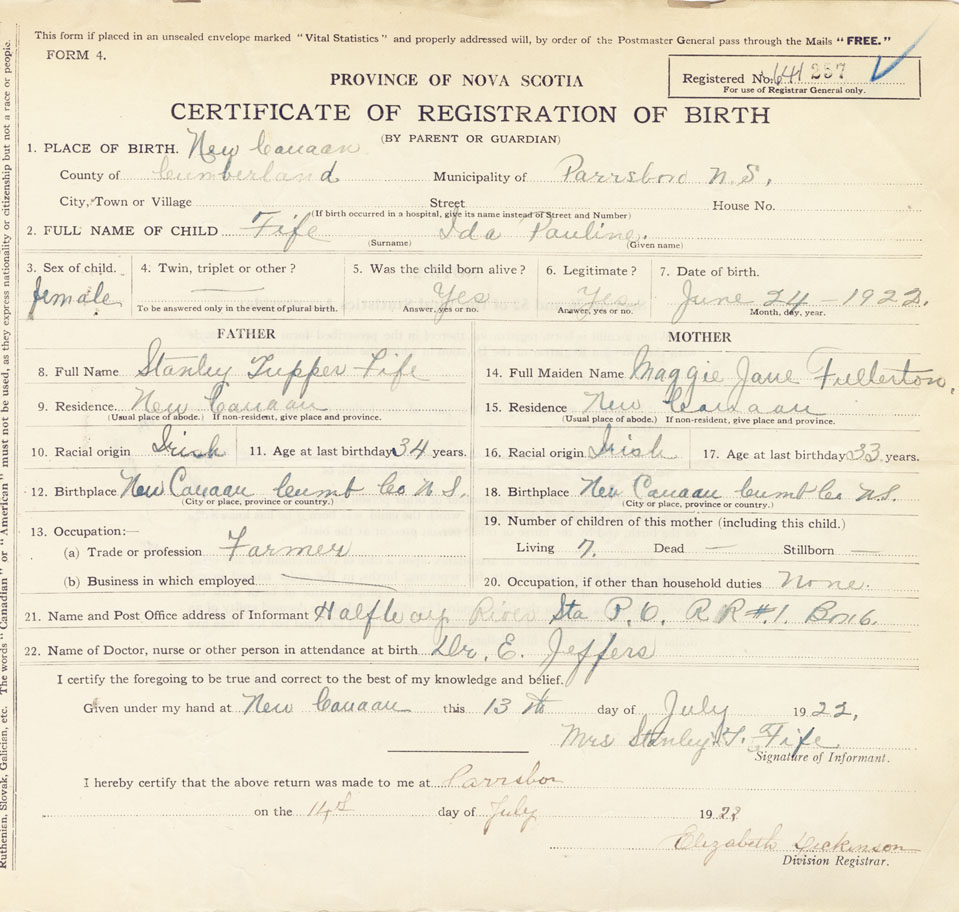 This form if placed in an unsealed envelope marked "Vital Statistics" and properly addressed will, by order of the Postmaster General pass through the Mails "FREE."
FORM 4.
PROVINCE OF NOVA SCOTIA
Registered No. 641 287
For use of Registrar General only.
CERTIFICATE OF REGISTRATION OF BIRTH
(BY PARENT OR GUARDIAN)
1. PLACE OF BIRTH. New Canaan
County of Cumberland Municipality of Parrsboro N.S.
City, Town or Village Street House No.
(If birth occurred in a hospital, give its name instead of Street and Number)
2. FULL NAME OF CHILD Fife Ida Pauline.
(Surname) (Given name)
3. Sex of child. 4. Twin, triplet or other? 5. Was the child born alive? 6. Legitimate? 7. Date of birth.
female — Yes Yes June 24 – 1922.
To be answered only in the event of plural birth. Answer, yes or no. Answer, yes or no. Month, day, year.
FATHER MOTHER
8. Full Name Stanley Tupper Fife 14. Full Maiden Name Maggie Jane Fullerton,
9. Residence New Canaan 15. Residence New Canaan
(Usual place of abode.) If non-resident, give place and province. (Usual place of abode.) If non-resident, give place and province.
10. Racial origin Irish 11. Age at last birthday 34 years. 16. Racial origin Irish 17. Age at last birthday 33 years.
12. Birthplace New Canaan Cumb Co N.S. 18. Birthplace New Canaan Cumb Co N.S.
(City or place, province or country.) (City or place, province or country.)
13. Occupation:— 19. Number of children of this mother (including this child.)
(a) Trade or profession Farmer Living 7. Dead — Stillborn —
(b) Business in which employed 20. Occupation, if other than household duties None.
21. Name and Post Office address of Informant Halfway River Sta P.O. RR #1. Box 6.
22. Name of Doctor, nurse or other person in attendance at birth Dr. E. Jeffers
I certify the foregoing to be true and correct to the best of my knowledge and belief.
Given under my hand at New Canaan this 13th day of July 1922,
Mrs Stanley T. Fife
Signature of Informant.
I hereby certify that the above return was made to me at Parrsbor
on the 14th day of July 1922
Elizabeth Dickinson
Division Registrar.
Ruthenian, Slovak, Galician, etc. The words "Canadian" or "American" must not be used, as they express nationality or citizenship but not a race or people.